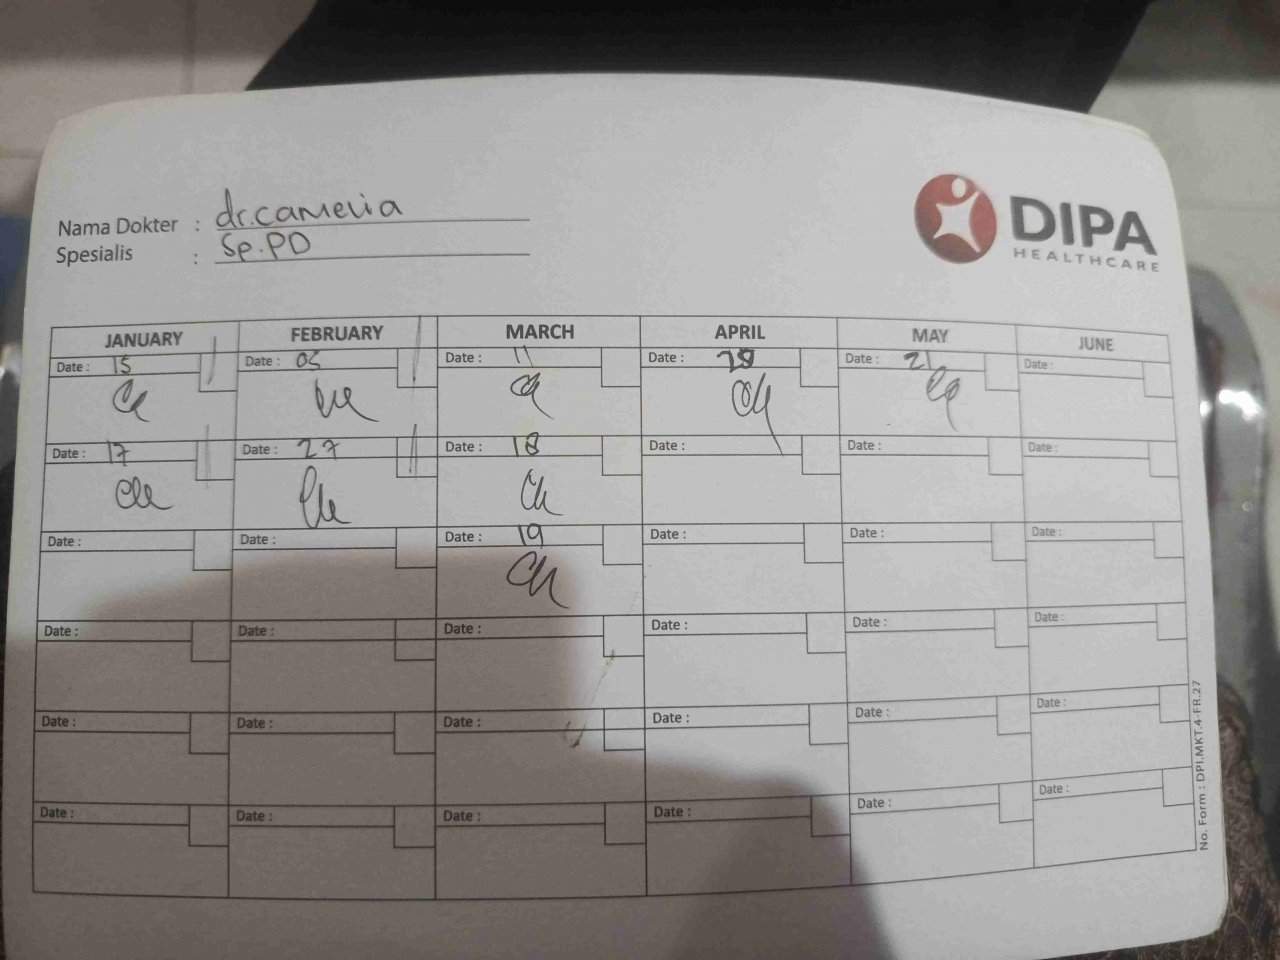 DIPA
HEALTHCARE
Nama Dokter : dr.camelia
Spesialis : Sp.PD
JANUARY FEBRUARY MARCH APRIL MAY JUNE
Date : 15 Date : 05 Date : 11 Date : Date : 21 Date :
Date : 17 Date : 27 Date : 18 Date : Date : Date :
Date : Date : Date : 19 Date : Date : Date :
Date : Date : Date : Date : Date : Date :
Date : Date : Date : Date : Date : Date :
Date : Date : Date : Date : Date : Date :
No. Form : DPI.MKT.4-FR.27